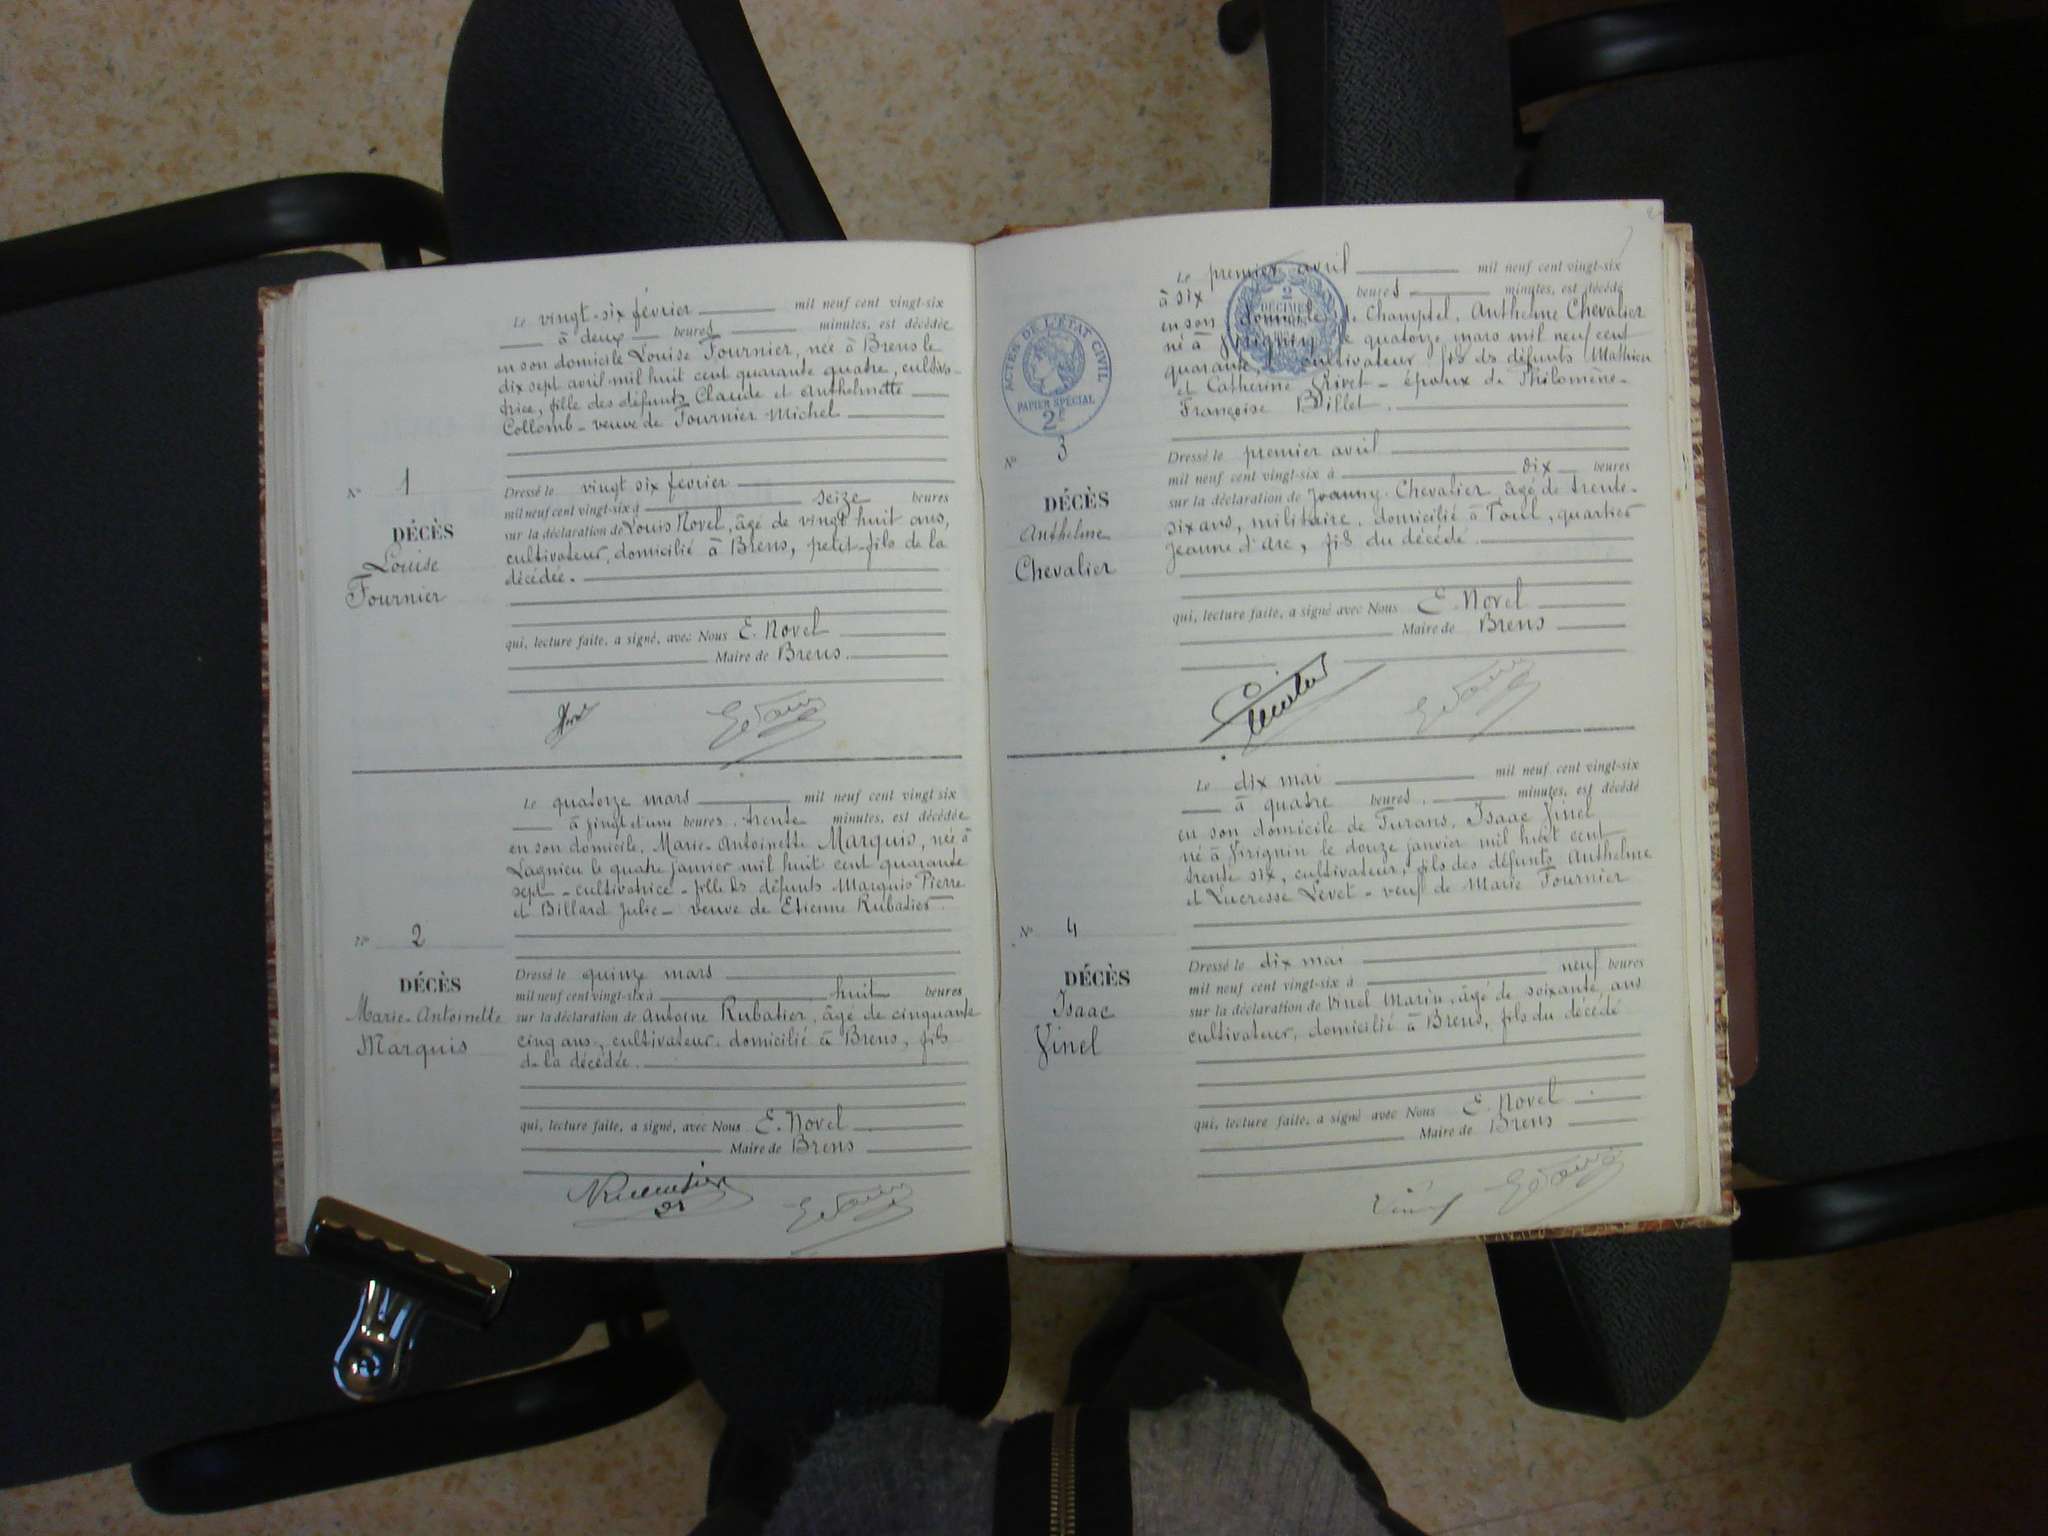 Le vingt-six février mil neuf cent vingt-six
à deux heures minutes, est décédée
en son domicile Louise Fournier, née à Brens le
dix sept avril mil huit cent quarante quatre, cultiva-
trice, fille des défunts Claude et Anthelmette
Collomb - veuve de Fournier Michel
N° 1
DÉCÈS
Louise
Fournier
Dressé le vingt six février
mil neuf cent vingt-six à seize heures
sur la déclaration de Louis Novel, âgé de vingt huit ans,
cultivateur, domicilié à Brens, petit-fils de la
décédée.
qui, lecture faite, a signé, avec Nous E. Novel
Maire de Brens.
Le quatorze mars mil neuf cent vingt-six
à vingt et une heures trente minutes, est décédée
en son domicile, Marie-Antoinette Marquis, née à
Lagnieu le quatre janvier mil huit cent quarante
sept - cultivatrice - fille des défunts Marquis Pierre
et Billard Julie - veuve de Etienne Rubatier.
N° 2
DÉCÈS
Marie-Antoinette
Marquis
Dressé le quinze mars
mil neuf cent vingt-six à huit heures
sur la déclaration de Antoine Rubatier, âgé de cinquante
cinq ans, cultivateur, domicilié à Brens, fils
de la décédée.
qui, lecture faite, a signé, avec Nous E. Novel
Maire de Brens
Le premier avril mil neuf cent vingt-six
à six heures minutes, est décédé
en son domicile Champtel, Anthelme Chevalier
né à le quatorze mars mil neuf cent
quarante cultivateur, fils des défunts Mathieu
et Catherine - époux de Philomène-
Françoise Billet.
ACTES DE L'ÉTAT CIVIL
PAPIER SPÉCIAL
2F
2
DÉCIMES
N° 3
DÉCÈS
Anthelme
Chevalier
Dressé le premier avril
mil neuf cent vingt-six à dix heures
sur la déclaration de Joanny Chevalier, âgé de trente-
six ans, militaire, domicilié à Toul, quartier
Jeanne d'Arc, fils du décédé.
qui, lecture faite, a signé avec Nous E. Novel
Maire de Brens
Le dix mai mil neuf cent vingt-six
à quatre heures minutes, est décédé
en son domicile de Furans, Isaac Vinel
né à Virignin le douze janvier mil huit cent
trente six, cultivateur, fils des défunts Anthelme
et Lucresse Levet - veuf de Marie Fournier
N° 4
DÉCÈS
Isaac
Vinel
Dressé le dix mai
mil neuf cent vingt-six à neuf heures
sur la déclaration de Vinel Marin, âgé de soixante ans
cultivateur, domicilié à Brens, fils du décédé
qui, lecture faite, a signé avec Nous E. Novel
Maire de Brens